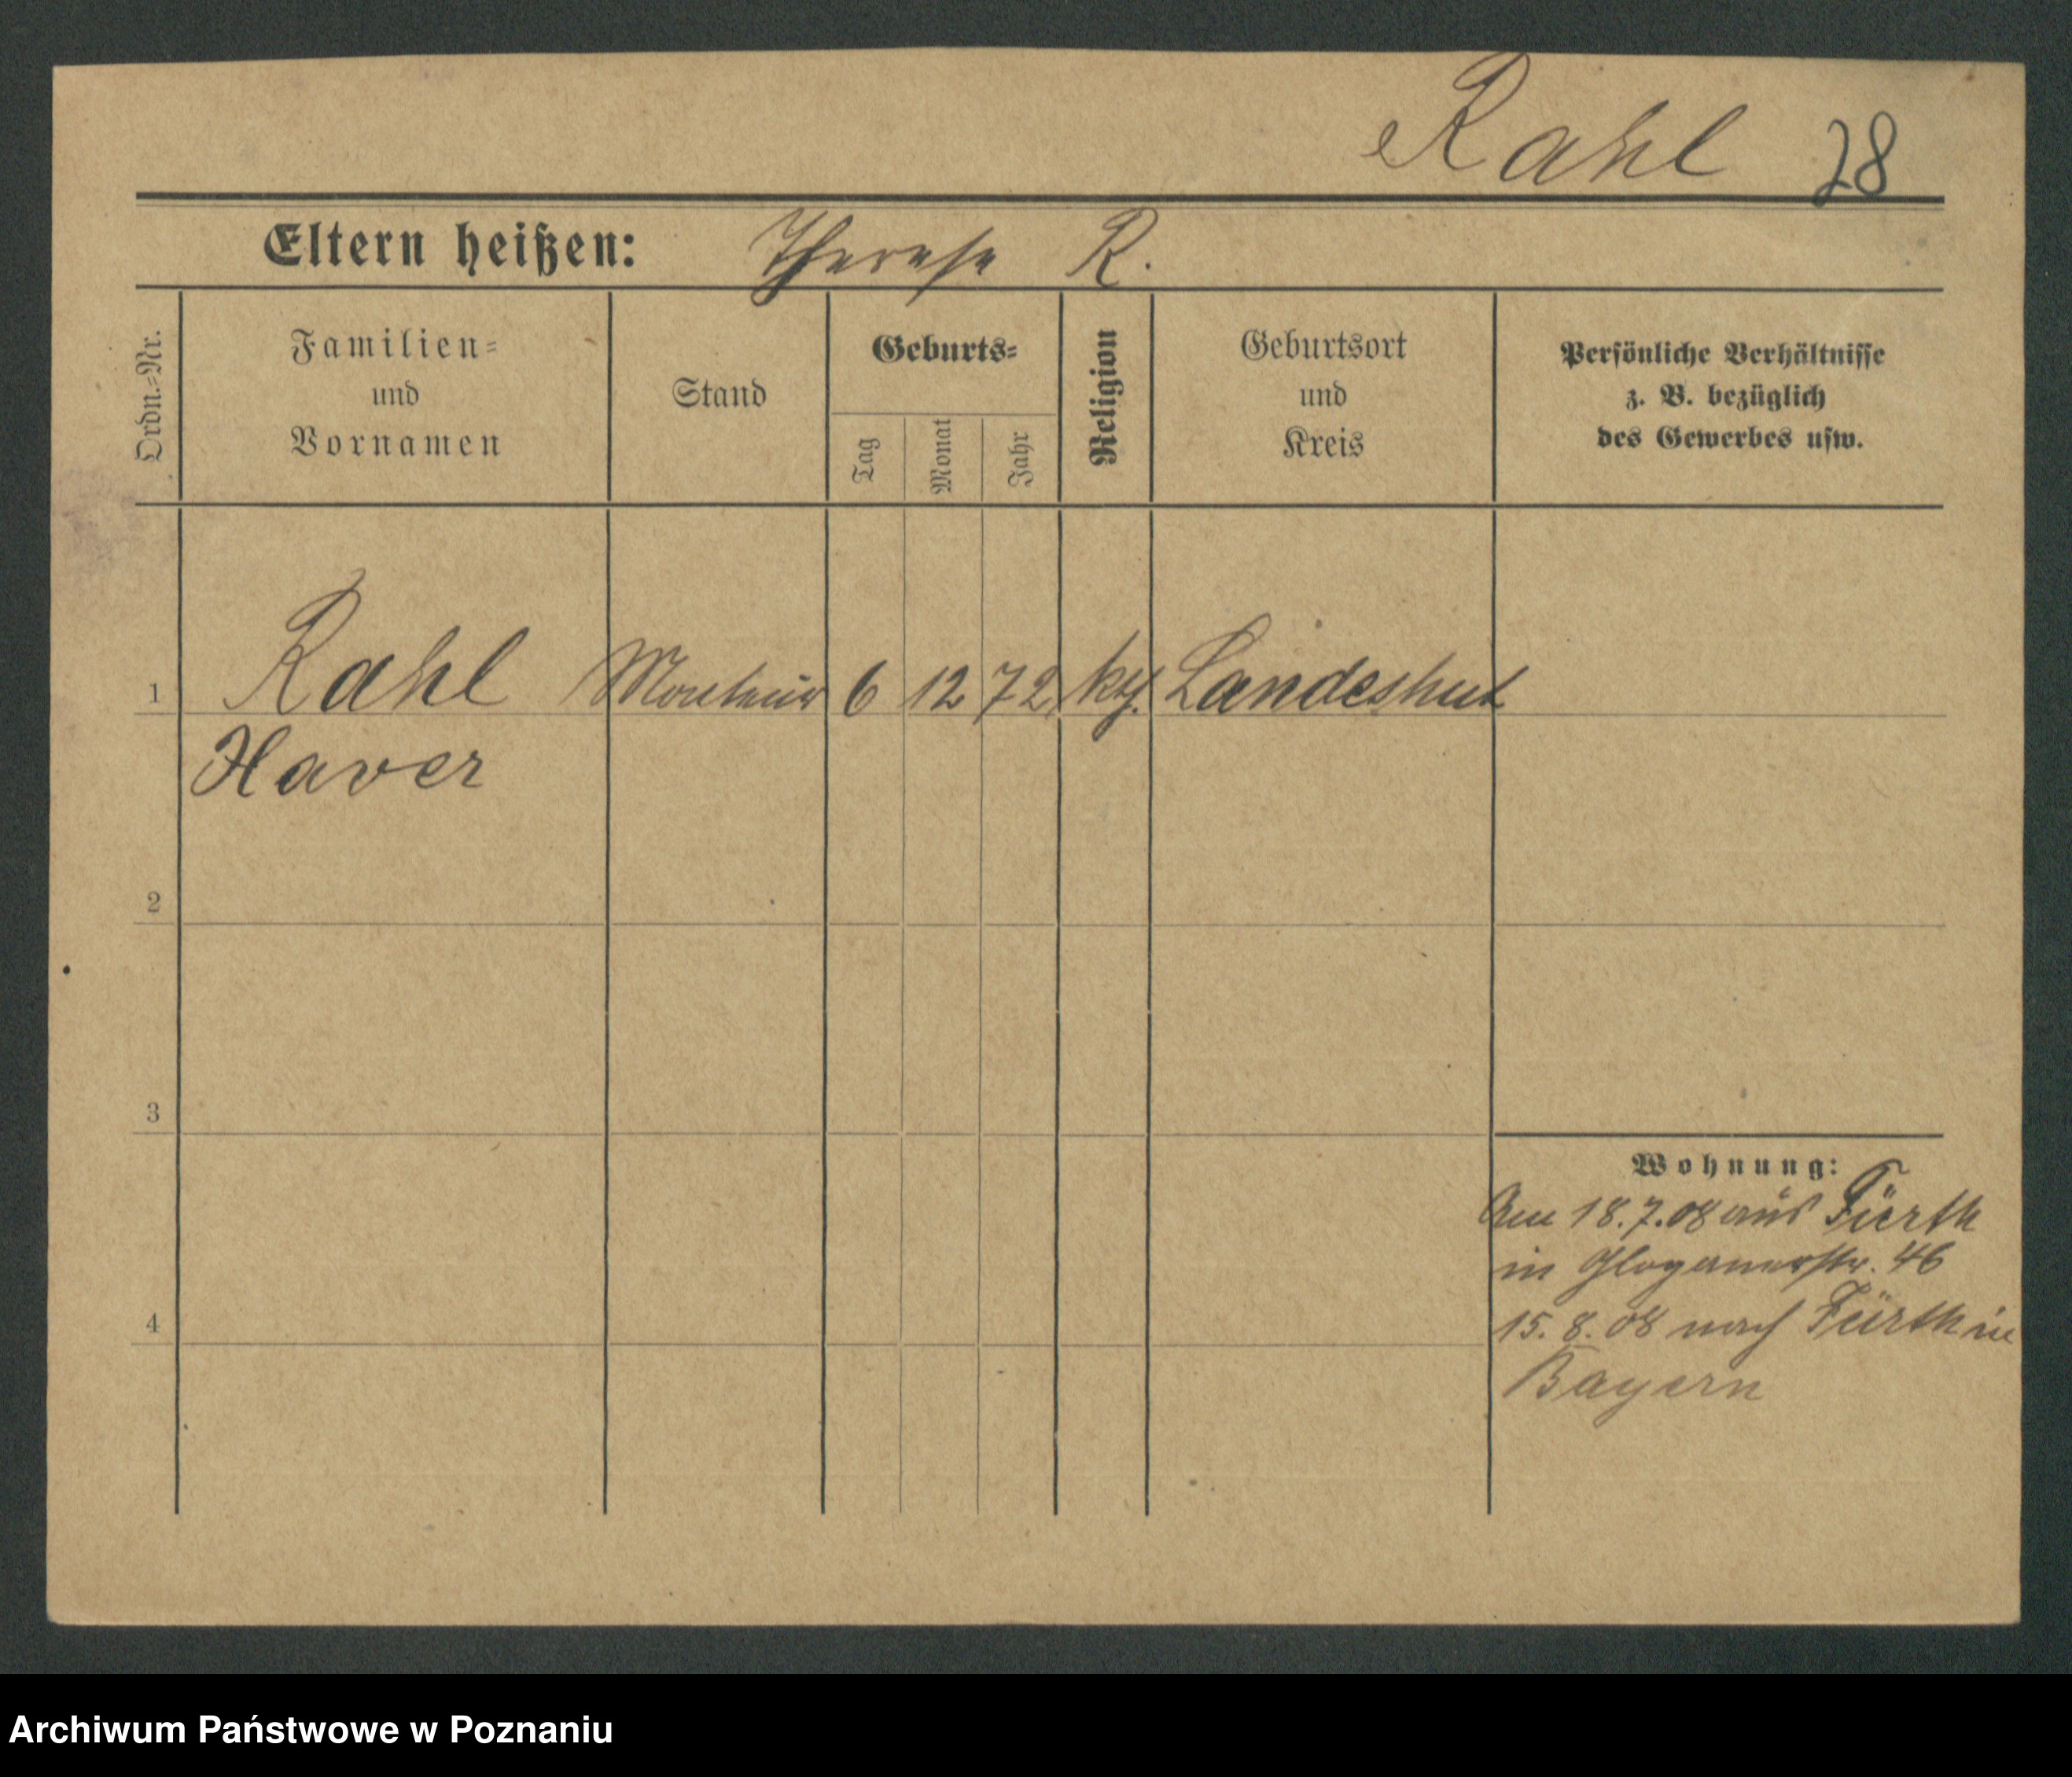 Rahl 28
Eltern heißen: Therese R.
Ordn.-Nr.
Familien-
und
Vornamen
Stand
Geburts-
Tag
Monat
Jahr
Religion
Geburtsort
und
Kreis
Persönliche Verhältnisse
z. B. bezüglich
des Gewerbes usw.
1 Rahl Monteur 6 12 72 kth. Landeshut
Xaver
2
3
4
Wohnung:
Am 18.7.08 aus Fürth
in Glogauerstr. 46
15.8.08 nach Fürth in
Bayern
Archiwum Państwowe w Poznaniu